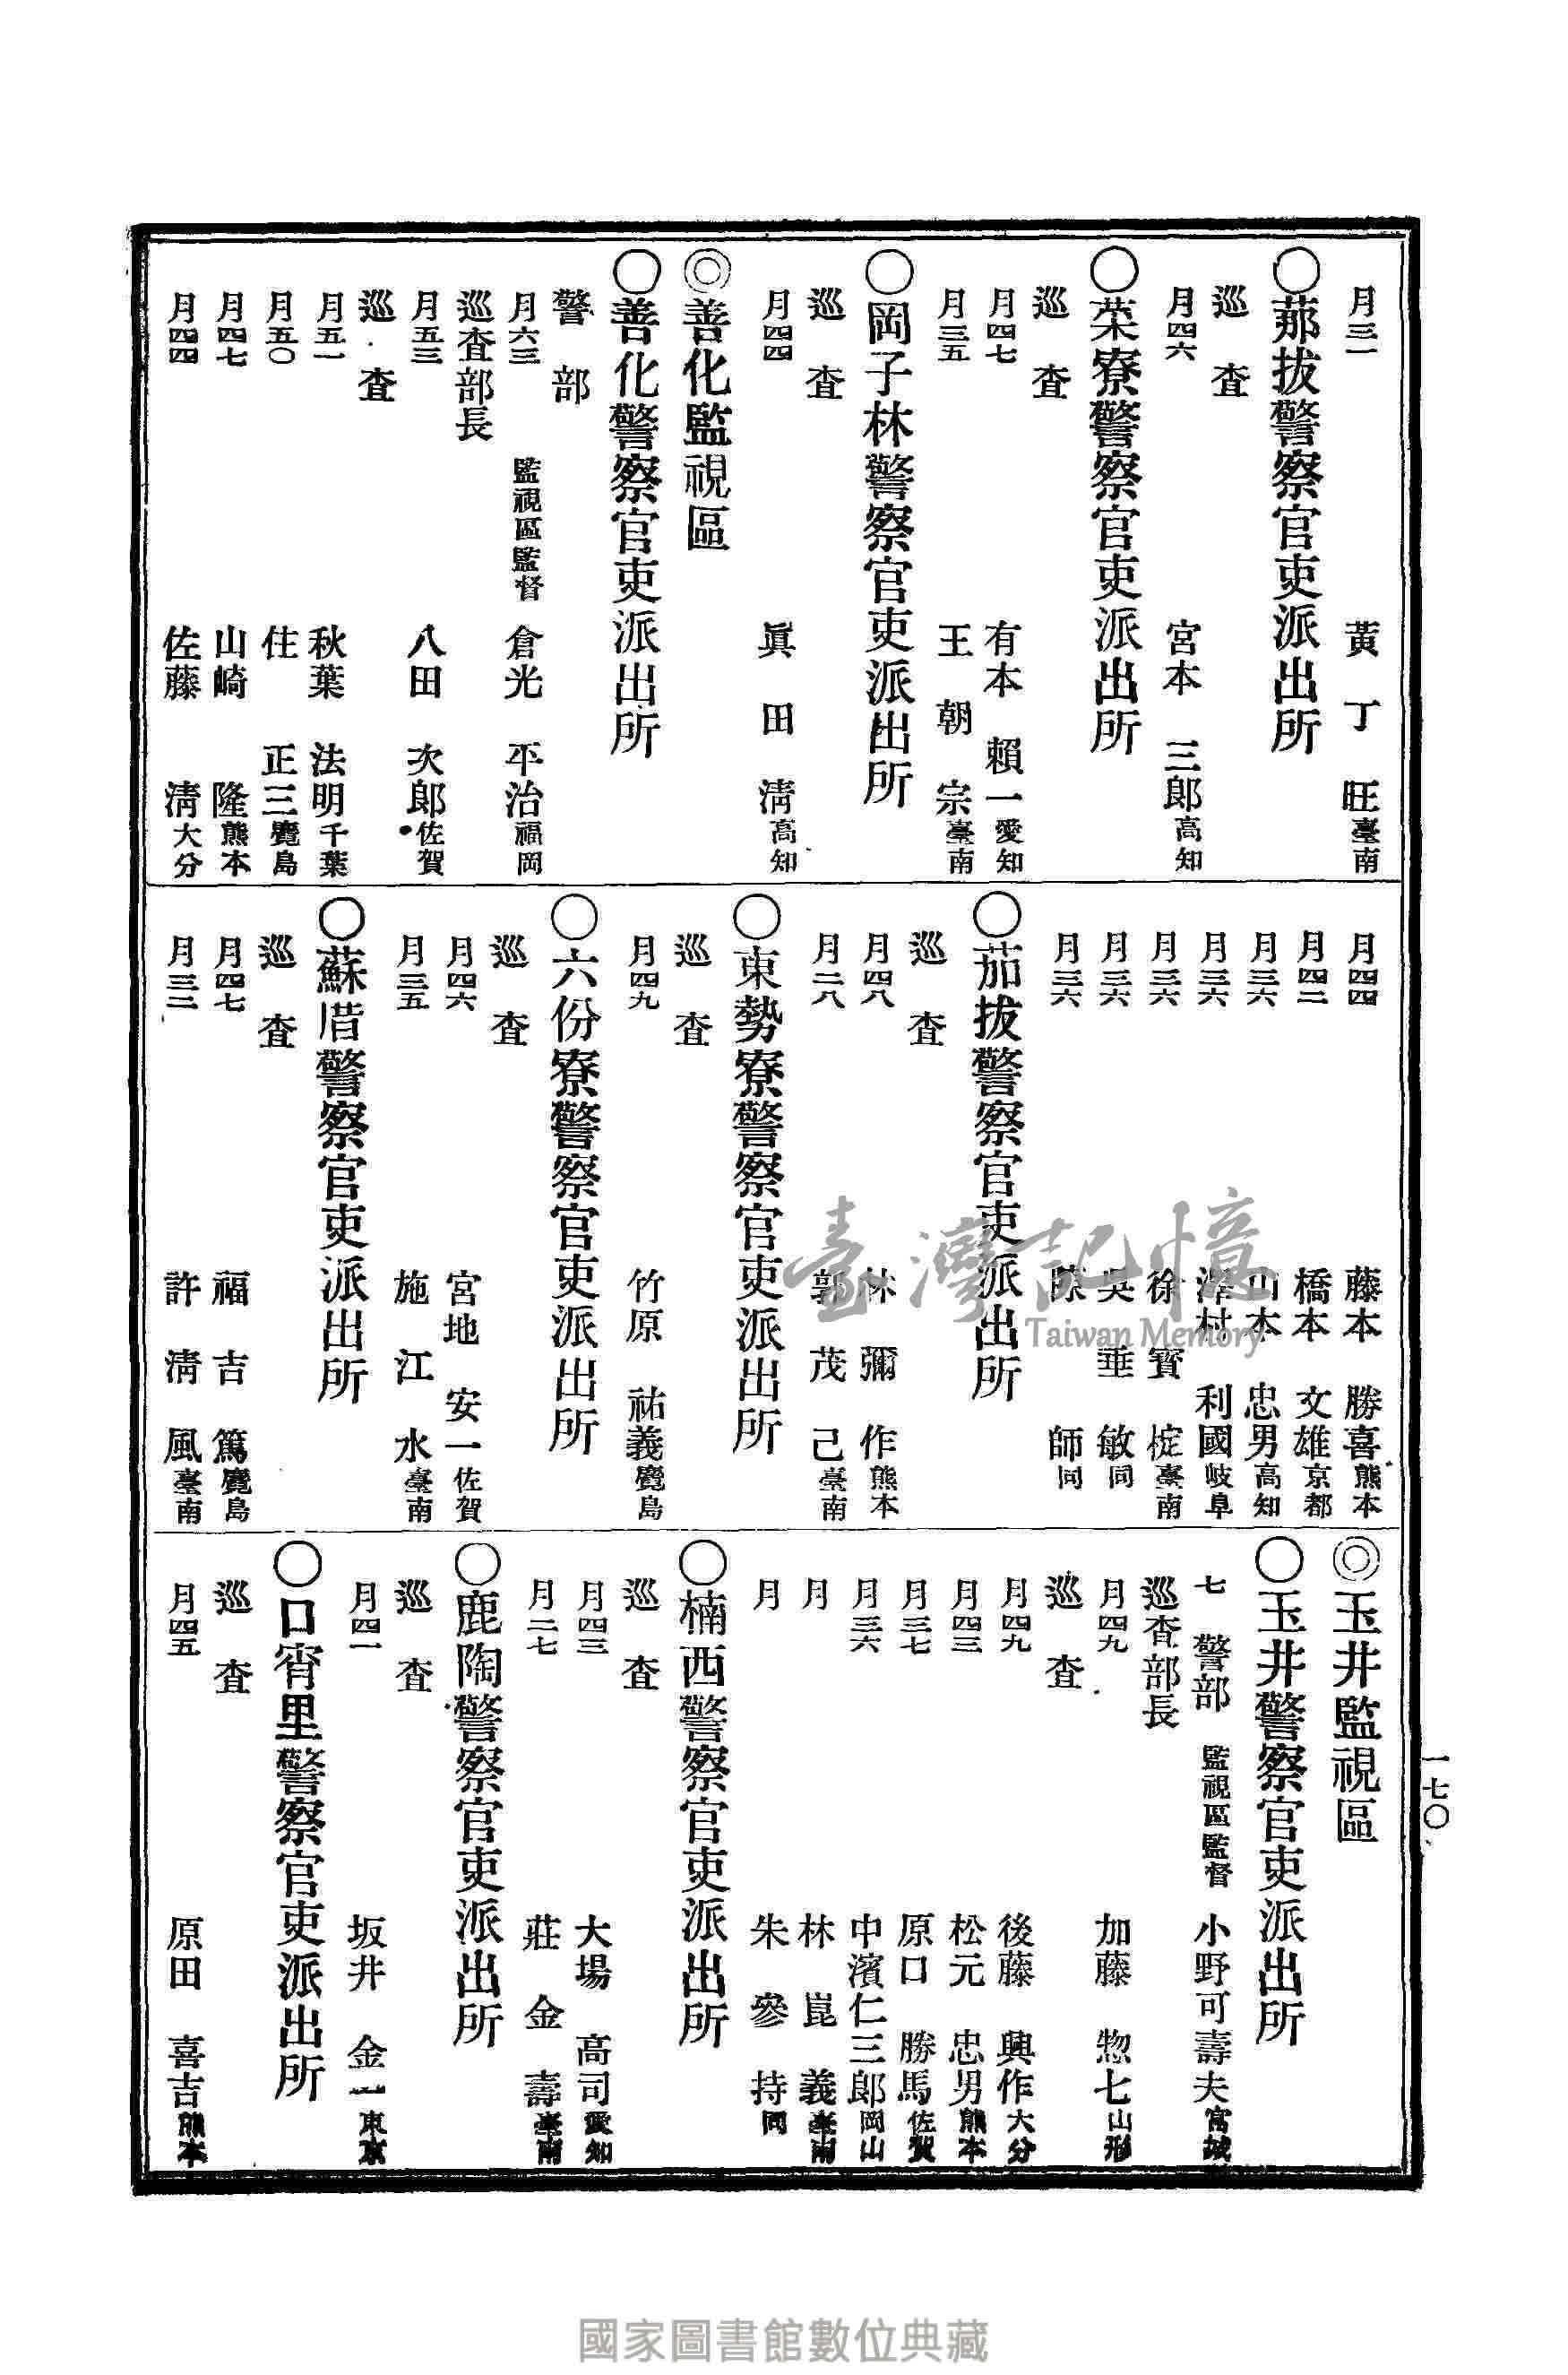 一七〇
月三一 黃丁旺 臺南
〇那拔警察官吏派出所
巡查
月四六 宮本三郎 高知
〇菜寮警察官吏派出所
巡查
月四七 有本賴一 愛知
月三五 王朝宗 臺南
〇岡子林警察官吏派出所
巡查
月四四 眞田淸 高知
◎善化監視區
〇善化警察官吏派出所
警部
月六三 監視區監督 倉光平治 福岡
巡查部長
月五三 八田次郎 佐賀
巡查
月五一 秋葉法明 千葉
月五〇 住正三 麑島
月四七 山崎隆 熊本
月四四 佐藤淸 大分
月四四 藤本勝喜 熊本
月四二 橋本文雄 京都
月三六 山本忠男 高知
月三六 澤村利國 岐阜
月三六 徐寶椗 臺南
月三六 吳垂敏 同
月三六 陳師 同
〇茄拔警察官吏派出所
巡查
月四八 林彌作 熊本
月二八 郭茂己 臺南
〇東勢寮警察官吏派出所
巡查
月四九 竹原祐義 麑島
〇六份寮警察官吏派出所
巡查
月四六 宮地安一 佐賀
月三五 施江水 臺南
〇蘇厝警察官吏派出所
巡查
月四七 福吉篤 麑島
月三二 許淸風 臺南
◎玉井監視區
〇玉井警察官吏派出所
七 警部 監視區監督 小野可壽夫 宮城
巡查部長
月四九 加藤惣七 山形
巡查
月四九 後藤興作 大分
月四三 松元忠男 熊本
月三七 原口勝馬 佐賀
月三六 中濱仁三郎 岡山
月 林崑義 臺南
月 朱參持 同
〇楠西警察官吏派出所
巡查
月四三 大場高司 愛知
月二七 莊金壽 臺南
〇鹿陶警察官吏派出所
巡查
月四一 坂井金一 東京
〇口宵里警察官吏派出所
巡查
月四五 原田喜吉 熊本
臺灣記憶
Taiwan Memory
國家圖書館數位典藏